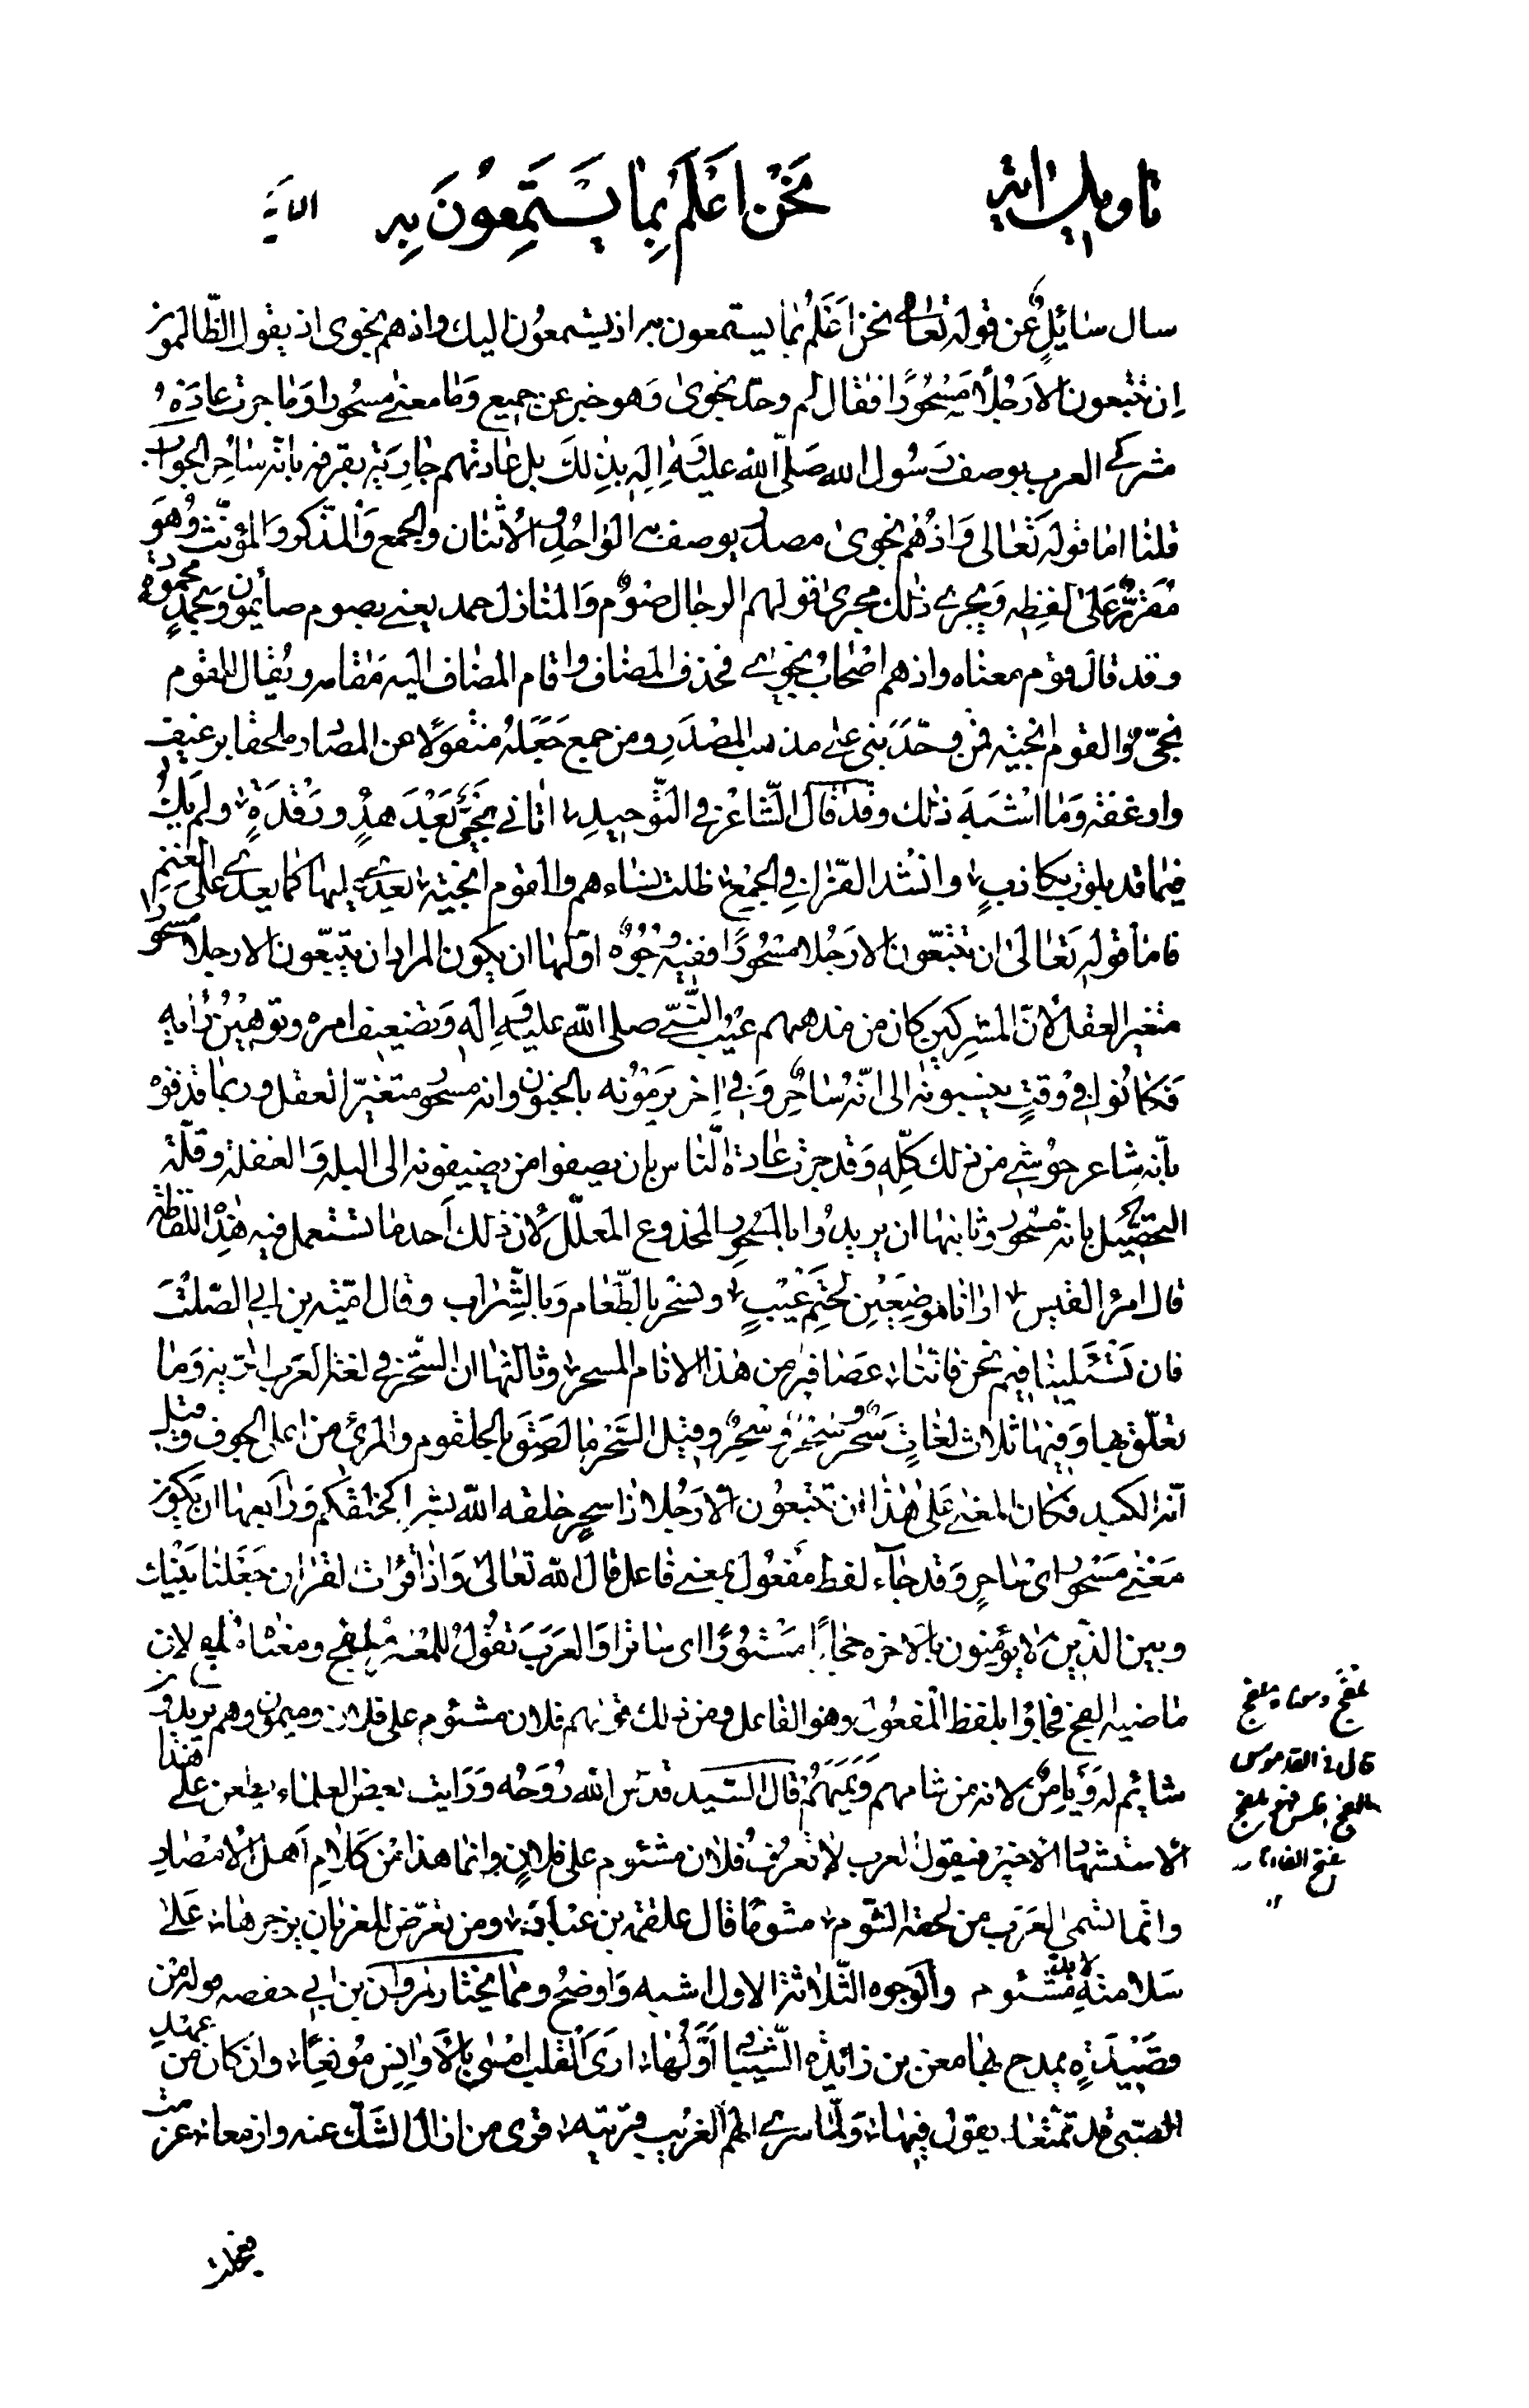 تاويل اية نَحْنُ اَعْلَمُ بِمَا يَسْتَمِعُونَ بِهِ الاية
سال سائلٌ عن قوله تعالى نحن اَعْلَمُ بما يستمعون به اذ يستمعون اليك واذ هم نجوى اذ يقول الظّالمون
اِن تتّبعون الا رَجُلًا مَسْحُورًا فقال لم وحّد نجوى وَهو خبر عن جميع وَما معنى مسحورا وَما جرت عادَة
مشركى العرب بوصف رَسُول الله صَلّى الله عليه وَاله بذلك بل عادتهم جارية بقرفه بانّه ساحر الجواب
قلنا اما قوله تَعَالى وَاذ هُم نجوى مصدر يوصف به الوَاحد والاثنان والجمع وَالمذكر والمؤنّث وهو
مُقَرٌّ على لفظه وَيجرى ذلك مجرى قولهم الرجال صَوْمٌ وَالمنازل حمد يعنى بصوم صائمون وبحمدٍ محمودة
وقد قال قوم معناه واذ هم اصحاب نجوى فحذف المضاف واقام المضاف اليه مَقامه ويُقال القوم
نجىّ والقوم انجيه فمن وحّدَ بنى على مذهب المصْدَرِ ومن جمع جَعَلهُ منقولًا عن المصادر ملحقا برغيف
وارغفة وَما اشْبَهَ ذلك وقد قالَ الشّاعرُ فى التّوحيدِ اتانى نجيّى بَعْدَ هدْءٍ ورَقْدَةٍ ولم يك
فيما قد بلوت بكاذبٍ وانشد الفرّاء في الجَمْع ظلت نساءهم والقوم انجية يعدى اليها كما يعدى على الغنم
فاما قوله تَعَالى ان تتّبعون الا رَجُلا مَسْحُورًا ففيه وُجُوهٌ اوّلها ان يكون المراد ان تتبعون الا رجلا مسحورا
متغير العقل لانّ المشركين كان من مذهبهم عَيْب النّبىّ صلى الله عليه وَاله وَتضعيف امره وتوْهين رَايه
فَكانُوا فى وَقتٍ ينسبونه الى انّه سَاحِرٌ وَفى اخر يرمُونه بالجنون وانه مسحور متغيّر العقل وربما قذفوه
بانّه شاعر حوشى من ذلك كلّه وَقد جرت عادة النّاس بان يصفوا من يضيفونه الى البله وَالغفلة وقلّة
التحصيل بانه مَسْحُور وثانيها ان يريدُوا بالمسْحُورِ المخدوع المعلّل لانّ ذلك احد ما تستعمل فيه هذه اللفظة
قال امرؤ القيس ارانا موضِعَيْنِ لحتم غَيْبٍ ونسحر بالطّعام وَبالشّراب وقال اميّة بن ابى الصّلت
فان تَسْئلينا فيم نحن فاننا عصافير من هذا الانام المسحر وثالثها انّ السّحر فى لغة العَرَب الرّية وَما
تعلّق بها وَفيها ثلاث لغاتٍ سَحْرٌ وسُحْرٌ وسَحَرٌ وقيل السَّحْر ما لصِقَ بالحلقوم والمرئ من اعلى الجوف وقيل
انّه الكبد فكان المعنى عَلى هذا ان تتّبعُون الا رَجُلا ذا سحر خلقه الله بشرا كخلقكم وَرابعها ان يكون
مَعْنى مَسْحور اى ساحر وَقد جاء لفظ مَفعُول بمعنى فاعل قال الله تعالى وَاذا قرات القرآن جَعَلنا بَيْنك
وبين الذين لا يؤمنون بالاخرة حجابًا مَسْتُورًا اى ساترا وَالعرَبَ تقُولُ للمعْسر مُلفج ومعناهُ ملفج لان
ماضيه الفج فجاؤا بلفظ المفعُول وهو الفاعل ومن ذلك قولهم فلان مشئوم على فلان وميمون وهم يريدون
شايم لهُ وَيامن لانه من شامهم ويَمَنَهُمْ قال السّيد قدّس الله رُوحَه وَرَايت بعض العلماء يطعن على هذا
الاستشهاد الاخير فيقول العرب لا تعرف فلان مشئوم على فلان وانما هذا من كلامِ اَهل الامْصَار
وانّما تسمى العَرَب من لحقه الشّوم مشومًا قال علقمة بن عبدة ومن تعرّض للغربان يزجرها علىٰ
سَلامته لا بدّ مَشئوم والوجوه الثّلاثة الاول اشبه وَاوضح ومما يختار لمروان بن ابى حفصه قوله من
قصَيْدَةٍ يمدح بها معن بن زائدة الشّيبانى اوّلها ارَى القلب امْسى بالاَوانِس مُولعًا وان كان من عهد
الصّبى قد تمتّعا يقول فيها وَلمّا سرى الهم الغريب قريته قرى من ازال الشّك عنه وازمعا عزمت
فعجلت
مُلفَج ومعناه ملفج
قال فى القاموس
الفج افلس فهو ملفج
بفتح الفاء